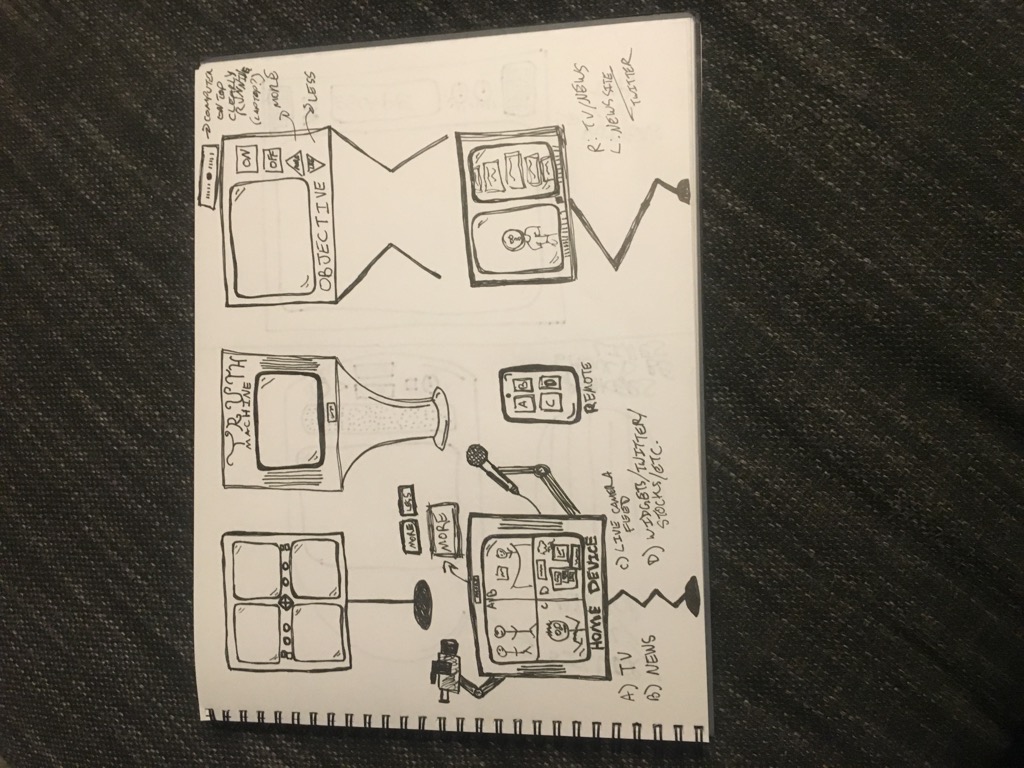 TRUTH
MACHINE
ON
OFF
MORE
OBJECTIVE
→ COMPUTER
ON TOP
CLEARLY
RUNNING
(LAPTOP?)
MORE
LESS
MORE LESS
MORE
A B
C D
HOME DEVICE
A) TV
B) NEWS
C) LIVE CAMERA
FEED
D) WIDGETS/TWITTER/
STOCKS/ETC.
A B
C D
REMOTE
R: TV/NEWS
L: NEWS SITE
TWITTER